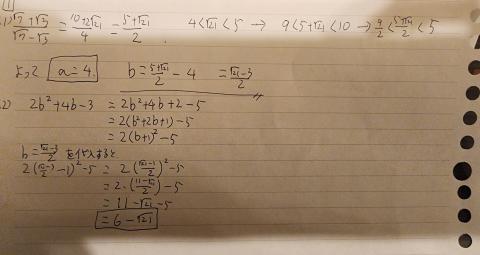 [1]
(1) (√7+√3)/(√7-√3) = (10+2√21)/4 = (5+√21)/2   4<√21<5 → 9<5+√21<10 → 9/2<(5+√21)/2<5
よって a=4. b=(5+√21)/2-4 =(√21-3)/2
(2) 2b²+4b-3 = 2b²+4b+2-5
= 2(b²+2b+1)-5
= 2(b+1)²-5
b=(√21-3)/2 を代入すると
2((√21-3)/2-1)²-5 = 2((√21-1)/2)²-5
= 2·((11-√21)/2)-5
= 11-√21-5
= 6-√21